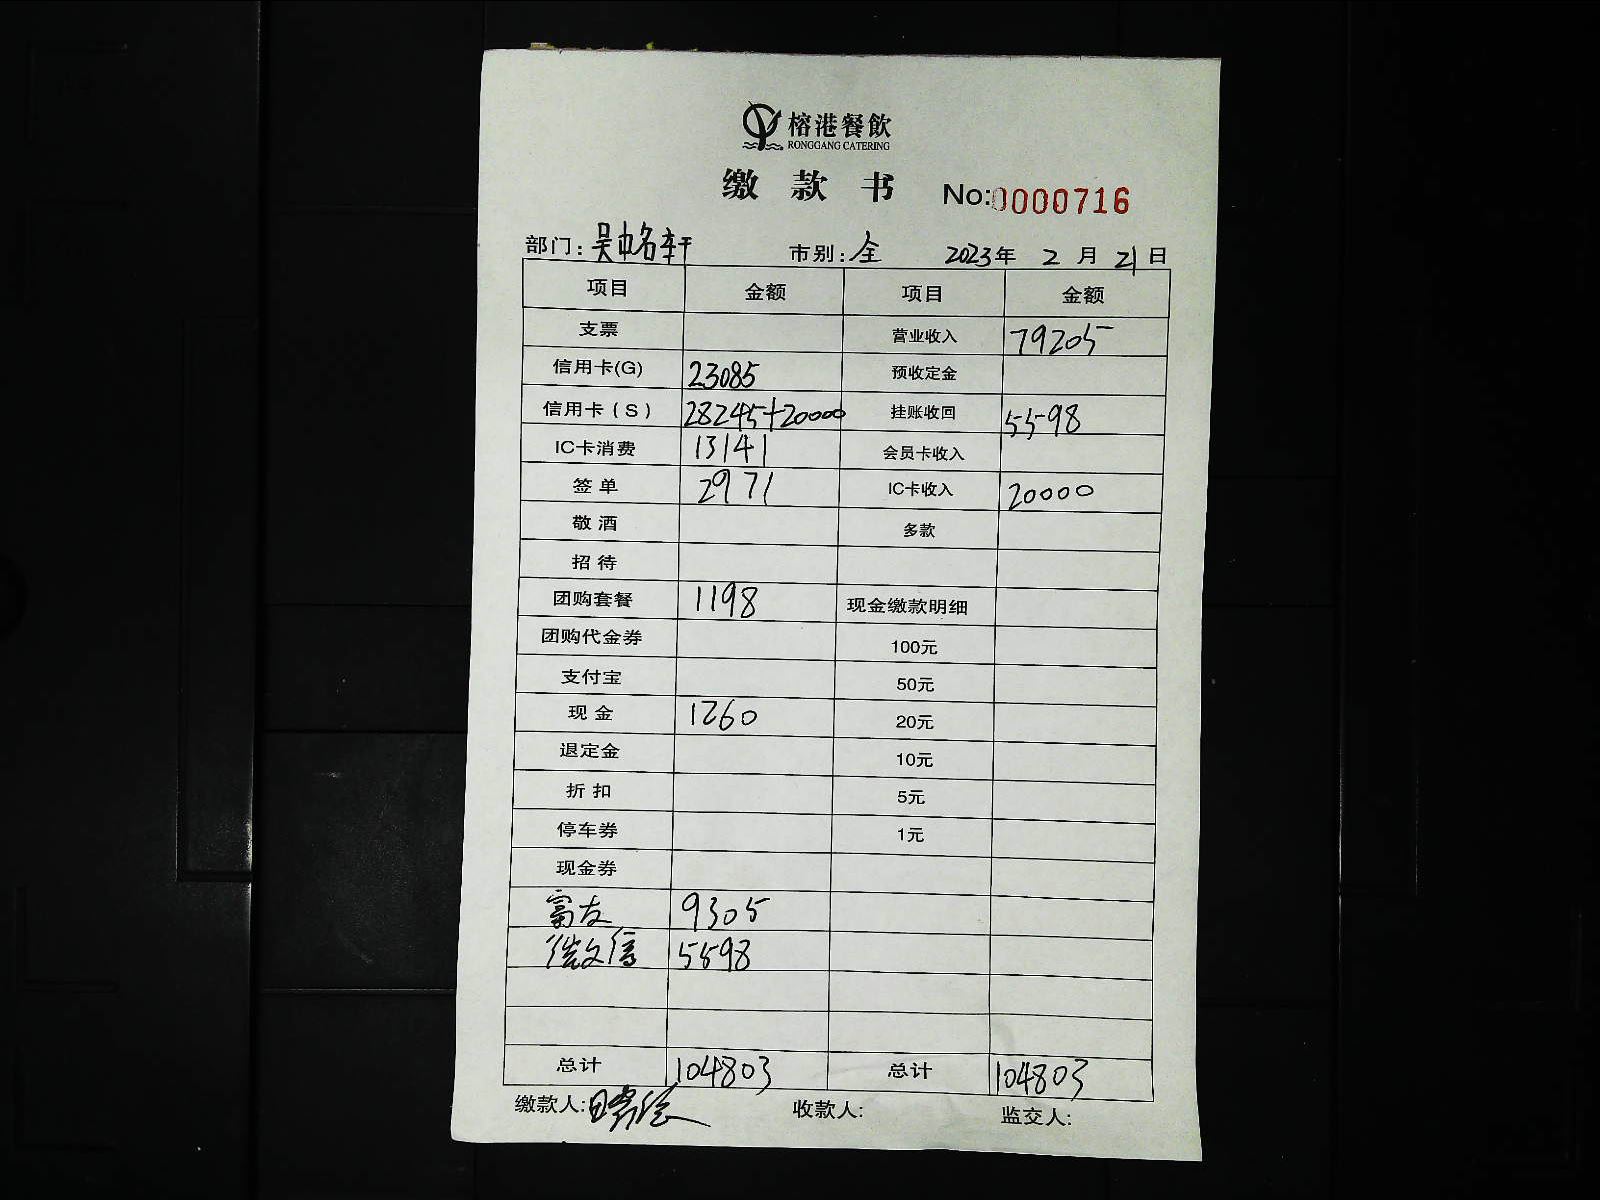 榕港餐飲
RONGGANG CATERING
缴款书 No:0000716
部门:吴中名轩 市别:全 2023年 2月 21日
项目 金额 项目 金额
支票 营业收入 79205
信用卡(G) 23085 预收定金
信用卡(S) 28245+20000 挂账收回 5598
IC卡消费 13141 会员卡收入
签单 2971 IC卡收入 20000
敬酒 多款
招待
团购套餐 1198 现金缴款明细
团购代金券 100元
支付宝 50元
现金 1260 20元
退定金 10元
折扣 5元
停车券 1元
现金券
富友 9305
微信 5598
总计 104803 总计 104803
缴款人: 收款人: 监交人: